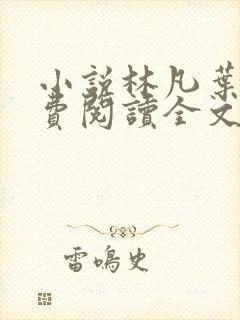 小説林凡葉
費閱讀全文
雷鳴史